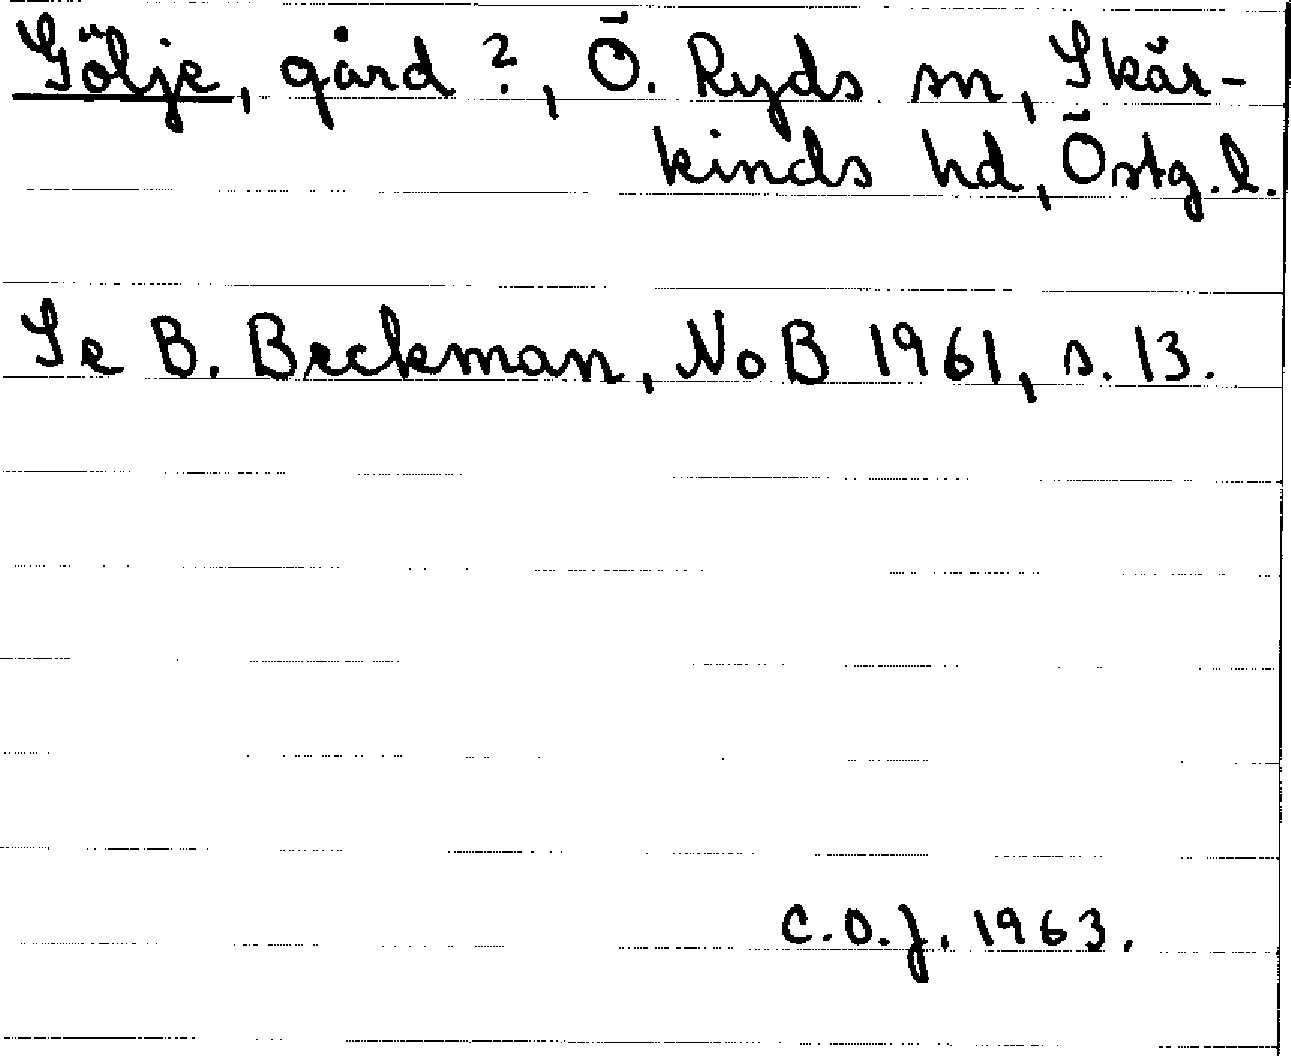 Gölje, gård ?, Ö. Ryds sn, Skär-
kinds hd, Östg. l.
Se B. Beckman, NoB 1961, s. 13.
C.O.J. 1963.